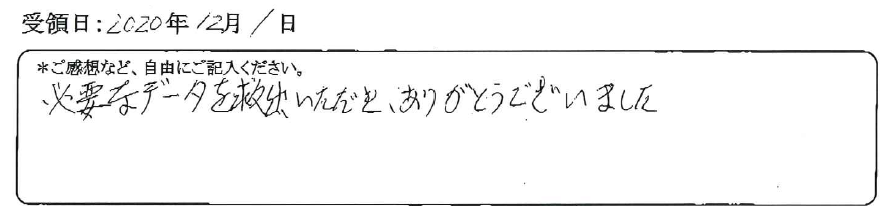 受領日：2020年12月1日
*ご感想など、自由にご記入ください。
必要なデータを救出いただき、ありがとうございました